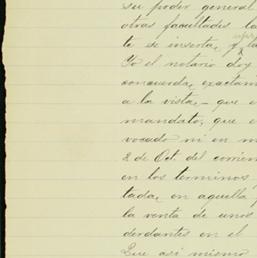 su poder general
otras facultades la
te se inserta, y la
Yo el notario doy
concuerda, exactam
a la vista, - que e
mandato, que e
vocado ni en m
2 de Oct. del corrien
en los terminos
tada, en aquella
la venta de unos
derdantes en el
Que asi mismo